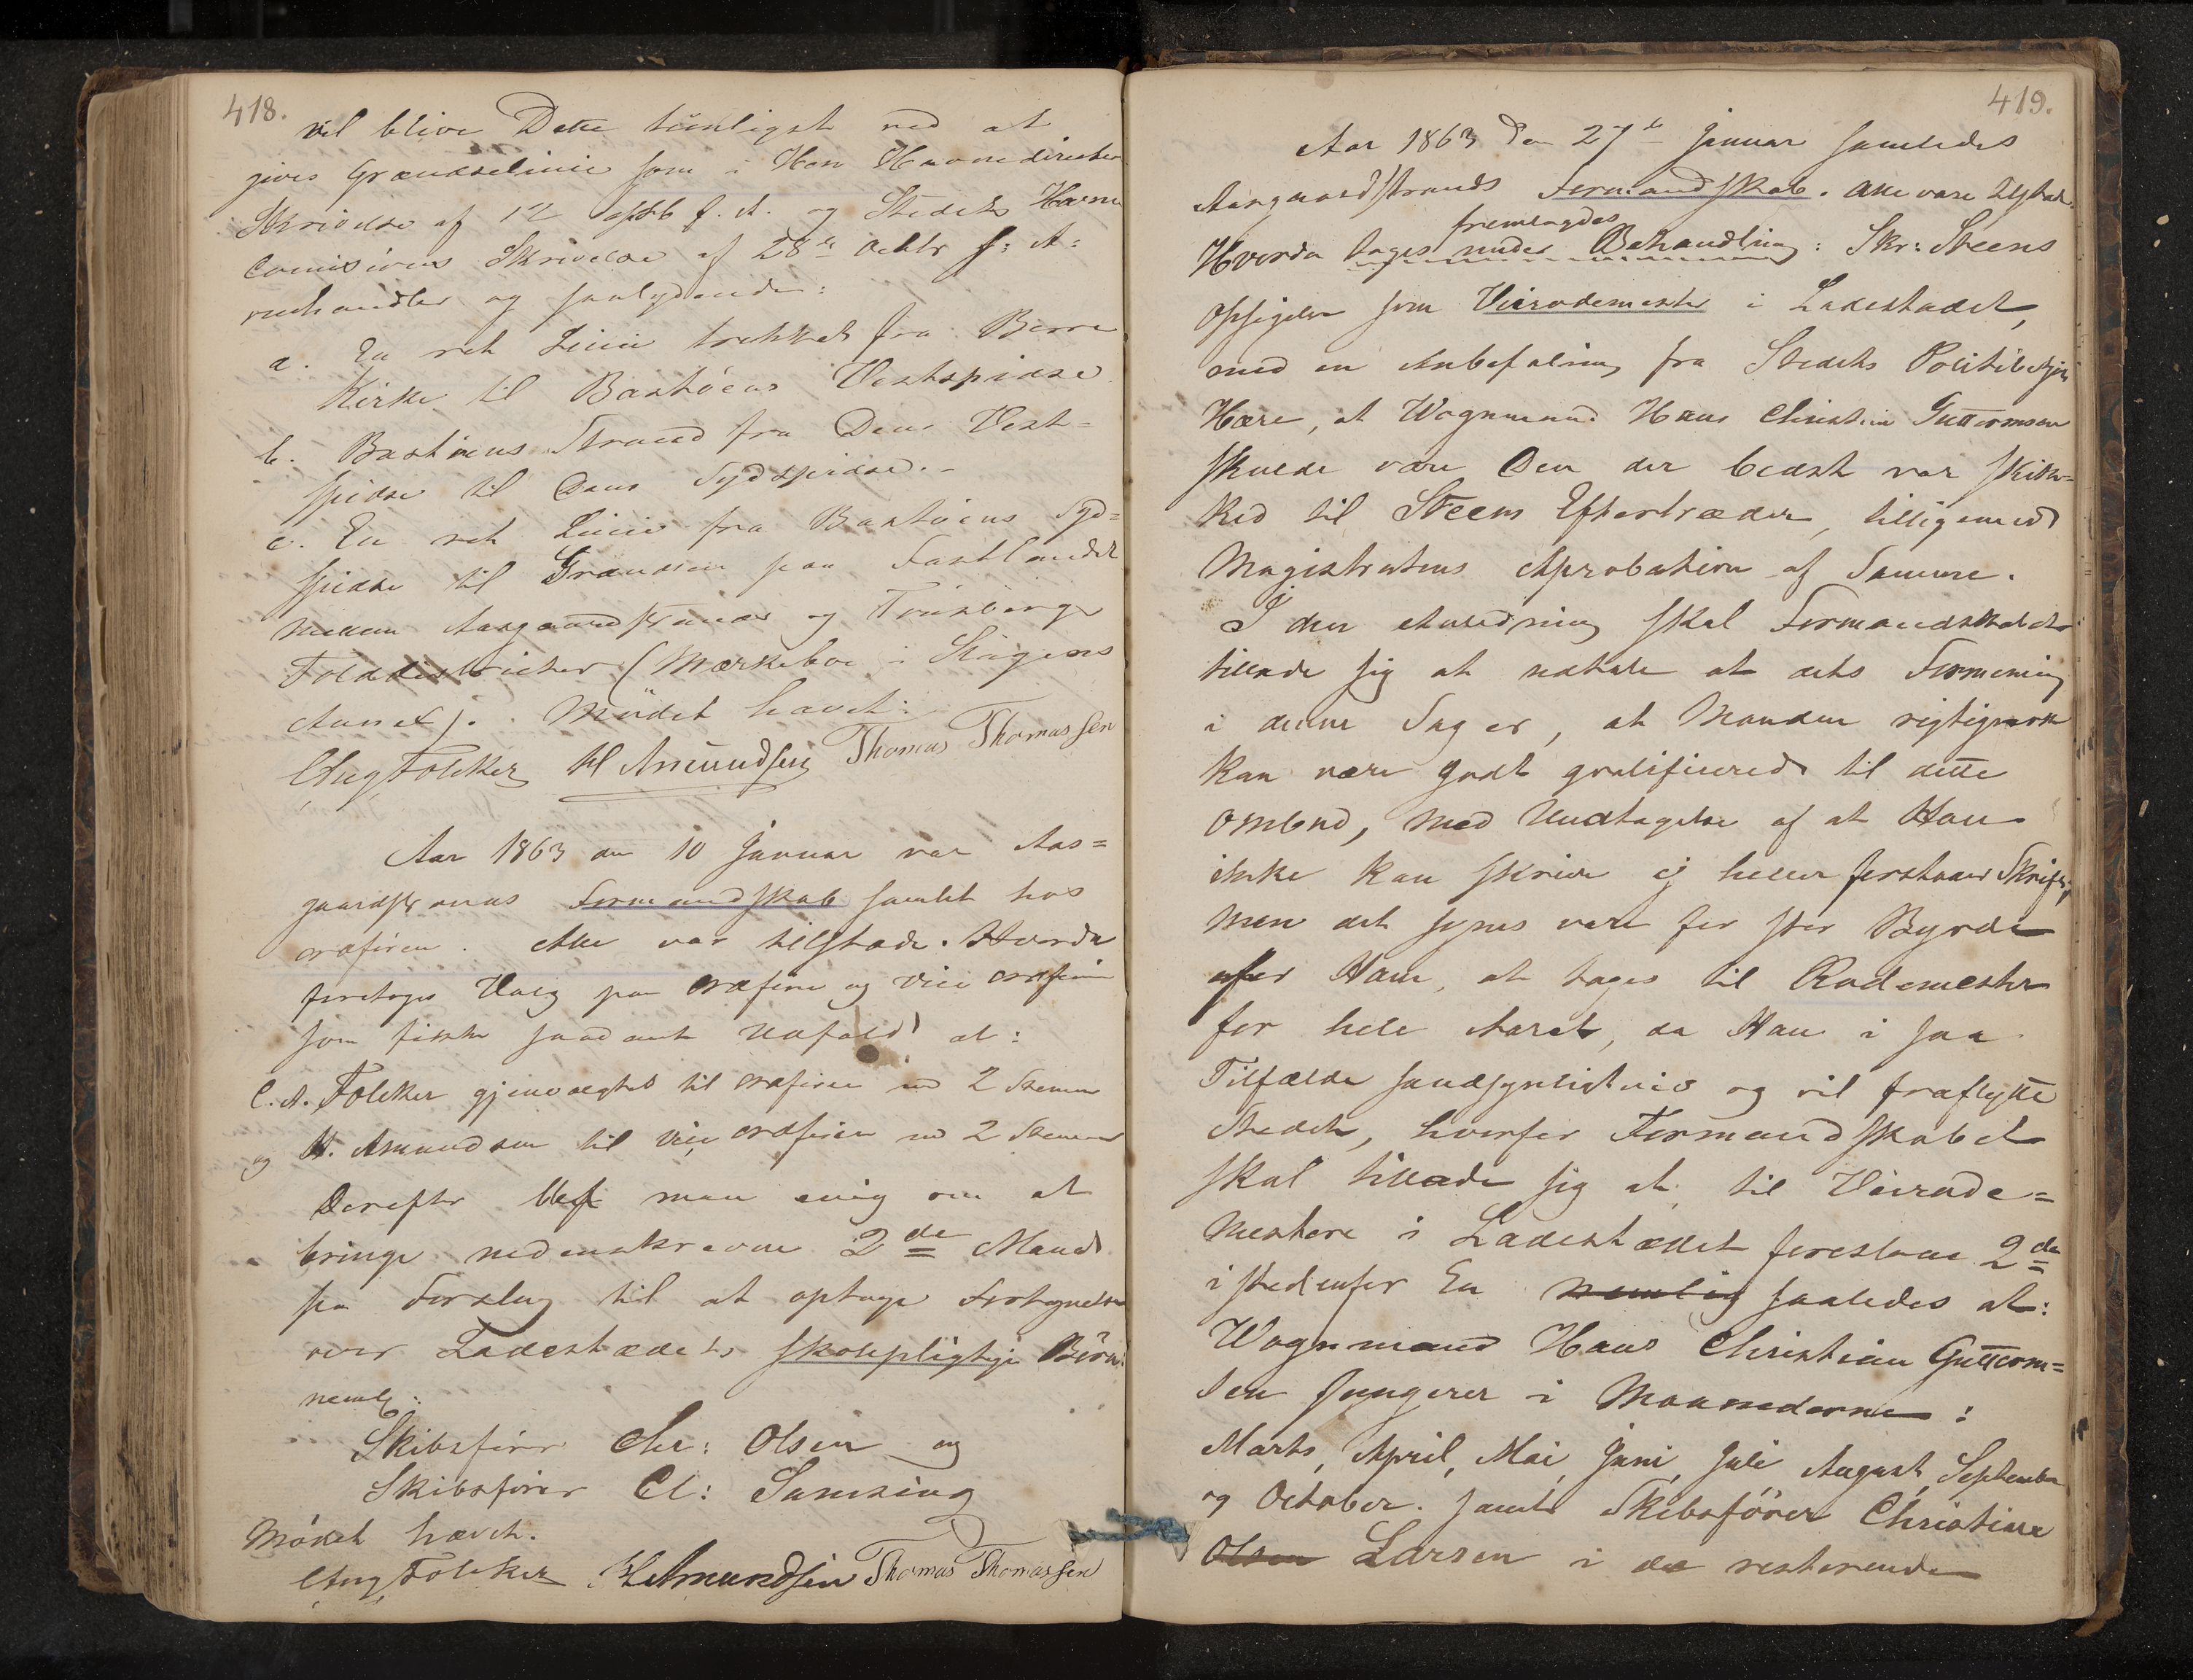 418.
vil blive Dette tienligst ved at
gives Grændselinie som i Herr Havnedirecteur
Skrivelse af 12 septb f. A. og Stedets Havne
Comisions Skrivelse af 28de Octbr f: A:
omhandler og saalydende:
a. En ret Linie trekket fra Borre
Kirke til Bastöens Vestspidse
b. Bastöens Strand fra Dens Vest=
spidse til Dens Sydspidse.-
c. En ret Linie fra Bastöens Syd=
spidse til Grændsen paa Fastlandet
mellem Aasgaardstrands og Tönsbergs
Tolddistricter (Mærkeboe i Slagens
Annex). Mödet hævet:
CAug Folcker H Amundsen Thomas Thomassen
Aar 1863 den 10 Januar var Aas=
gaardstrands Formandskab samlet hos
ordfören. Alle var tilstæde. Hvorda
foretoges Valg paa Ordförer og Vice Ordförer
som faldt saadant Udfald at:
C. A. Folcker gjenvalgtes til Ordförer med 2 Stemmer
og H. Amundsen til Vice Ordförer med 2 Stemmer
Derefter blef man enig om at
bringe nedenskrevne 2de Mænd
paa Forslag til at optage Fortegnelse
over Ladestædets skolepligtige Börn
nemlg:
Skibsförer Chr: Olsen og
Skibsförer Cl: Samsing
Mödet hævet.
CAug Folcker H Amundsen Thomas Thomassen
419.
Aar 1863 den 27de Januar samledes
Aasgaardstrands Formandskab. Alle vare tilstæde.
fremlagdes
Hvorda toges under Behandling: Skr: Steens
Opsigelse som Veirodemester i Ladestædet,
med en Anbefaling fra Stedets Politibetjent
Hære, at Wognmand Hans Christian Guttormsen
skulde være Den der bedst var skik=
ked til Steens Eftertræder, tilligemed
Magistratens Aprobation af Samme.
I den Anledning skal Formandskabet
tillade sig at udtale at dets Formening
i denne Sag er, at Manden rigtignok
kan være godt qvalificered til dette
Ombud, med Undtagelse af at Han
ikke kan skrive ej heller forstaaer Skrift,
men det synes være for stor Byrde
for Ham, at tages til Rodemester
for hele Aaret, da Han i saa
Tilfælde sandsynligtvis og vil fraflytte
Stedet, hvorfor Formandskabet
skal tillade sig at til Veirode=
mestere i Ladestædet foreslaae 2de
istedenfor En nemlig saaledes at:
Wognmand Hans Christian Guttorm=
sen fungerer i Maanederne:
Marts, April, Mai, Juni, Juli August, September
og October. samt Skibsförer Christian
Olsen Larsen i de resterende